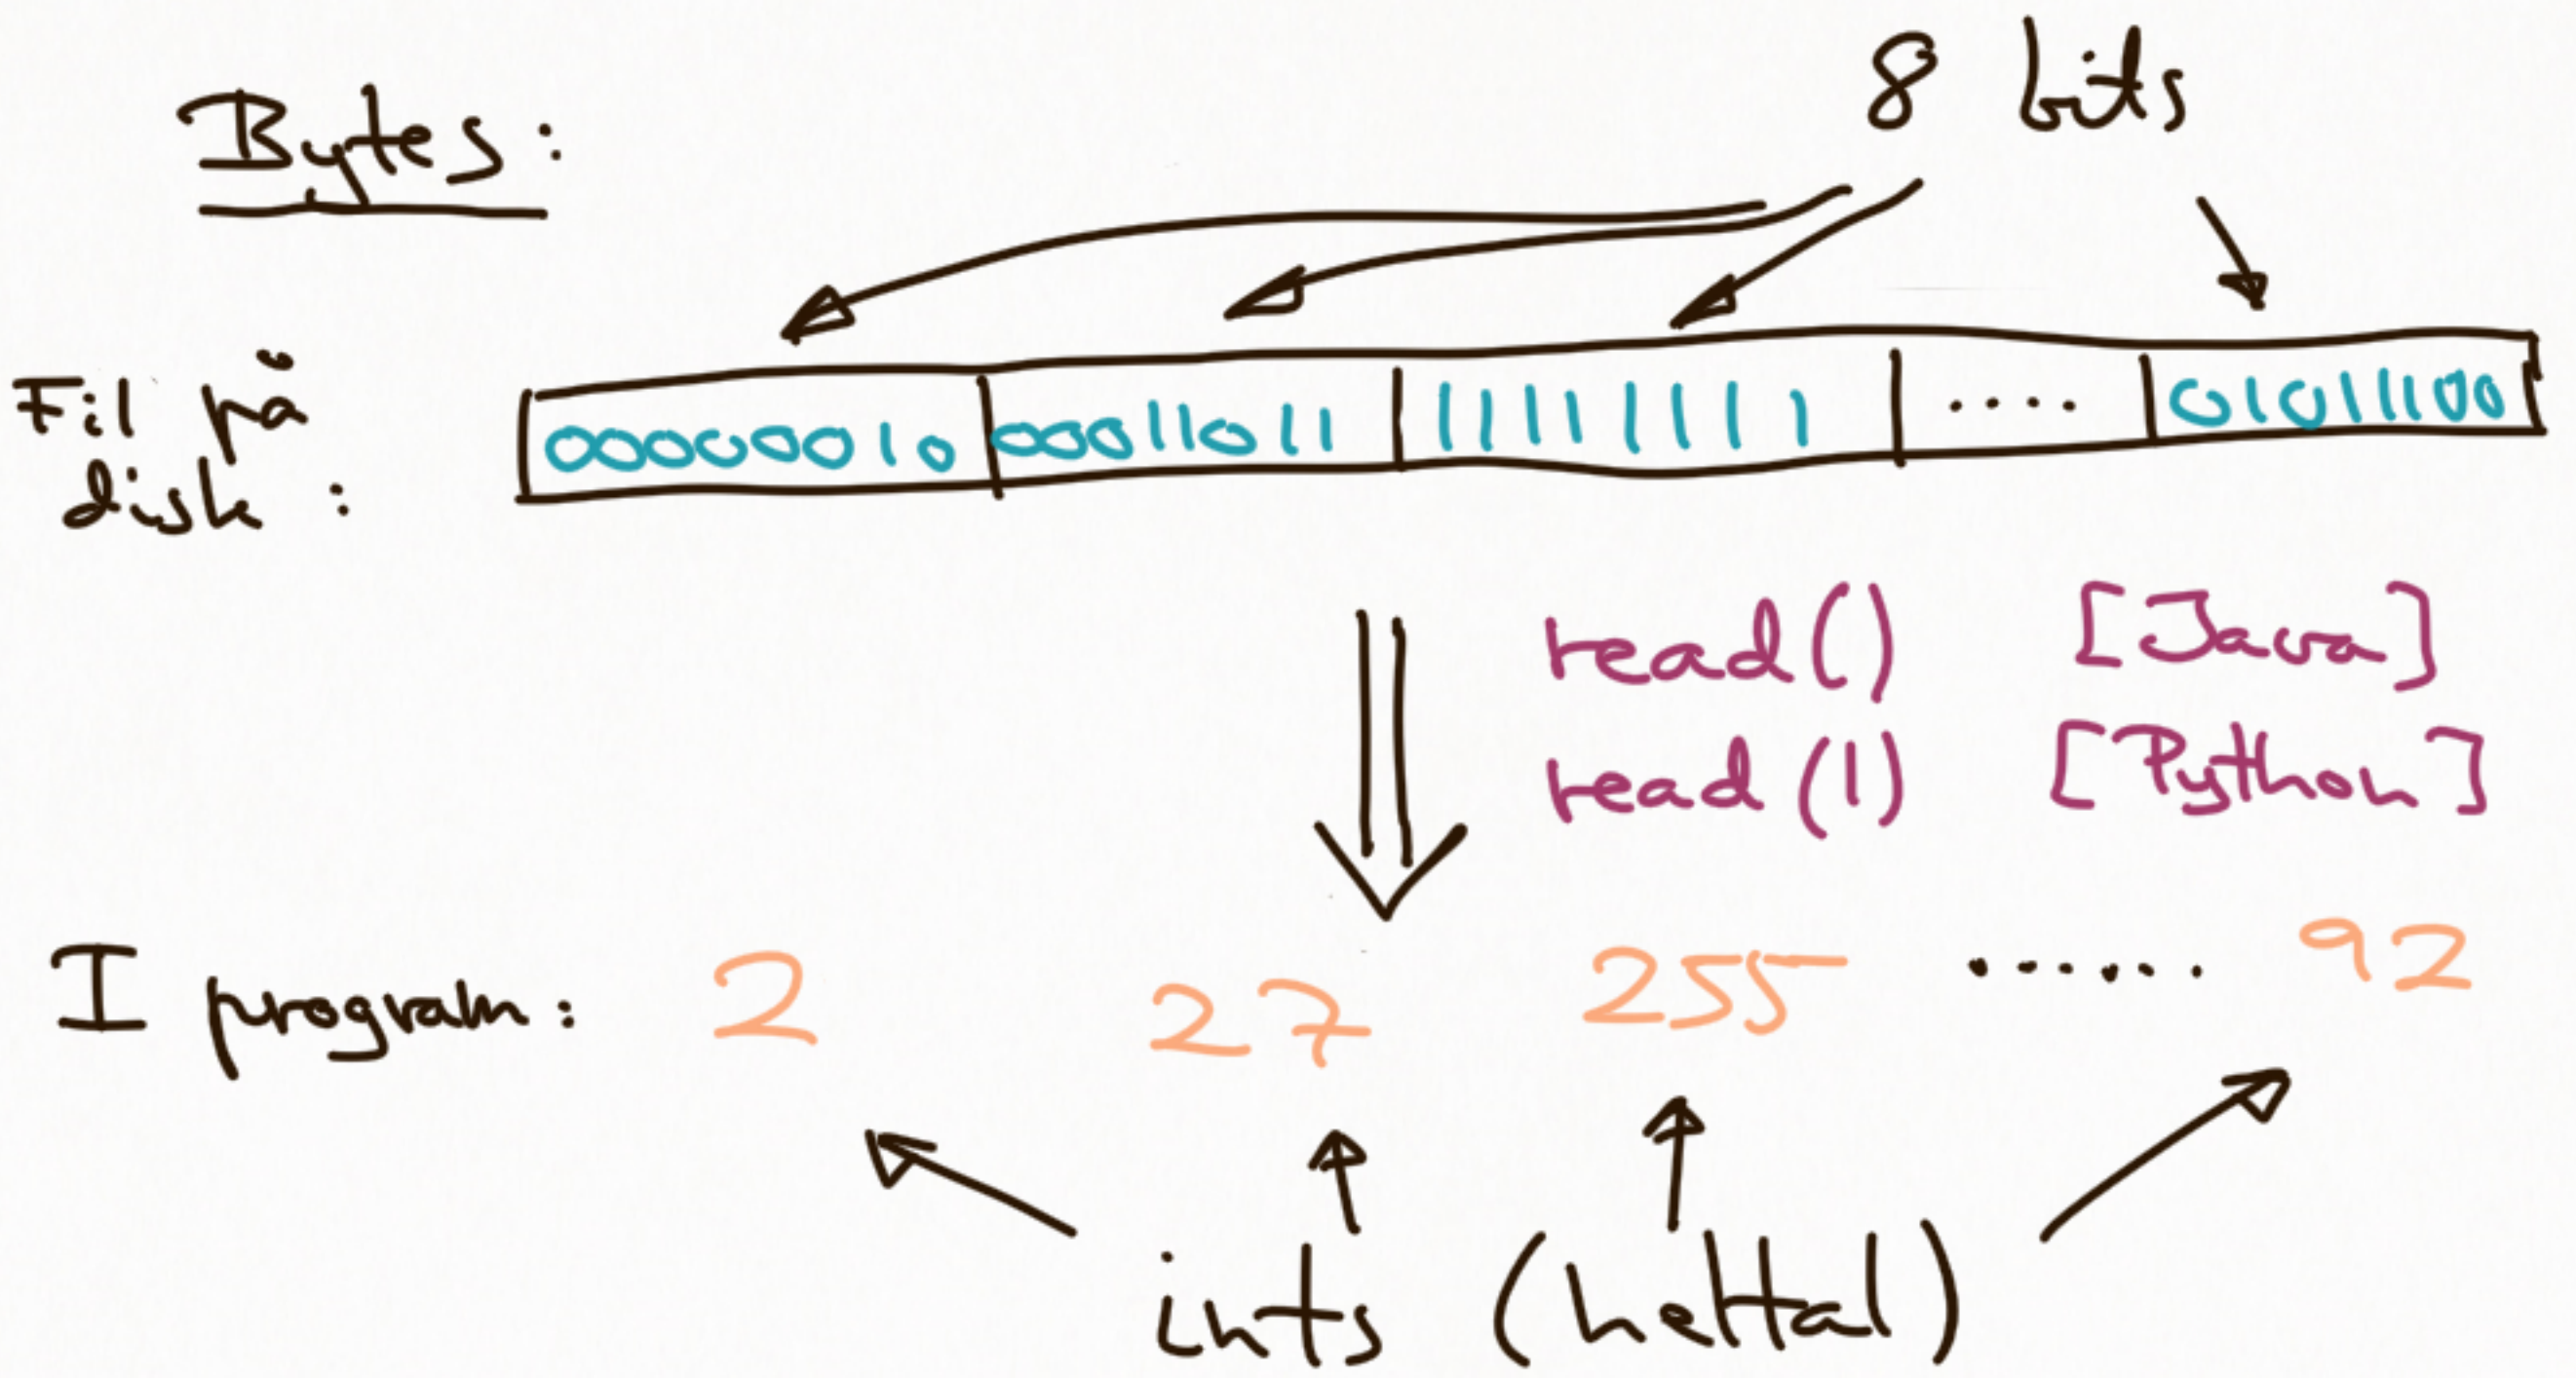 Bytes:
8 bits
Fil på
disk:
00000010 00011011 11111111 .... 01011100
read() [Java]
read(1) [Python]
I program: 2 27 255 ...... 92
ints (heltal)